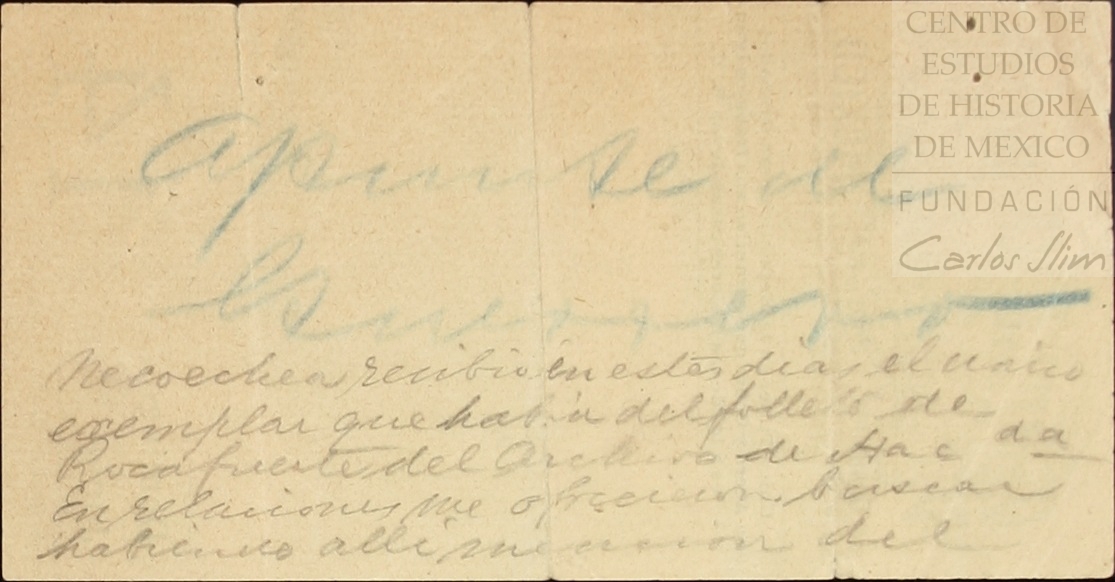 CENTRO DE
ESTUDIOS
DE HISTORIA
DE MEXICO
FUNDACIÓN
Carlos Slim
Apunte de
Guerrero
Necoechea recibio en estos dias el unico
exemplar que habia del folleto de
Rocafuerte del Archivo de Hacda
En relaciones me ofrecieron buscar
habiendo alli mencion del